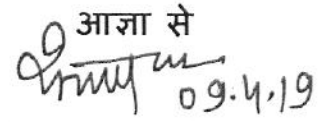 आज्ञा से
09.4.19